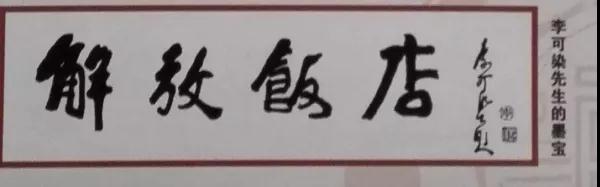 解放飯店
李可染題
李可染先生的墨宝